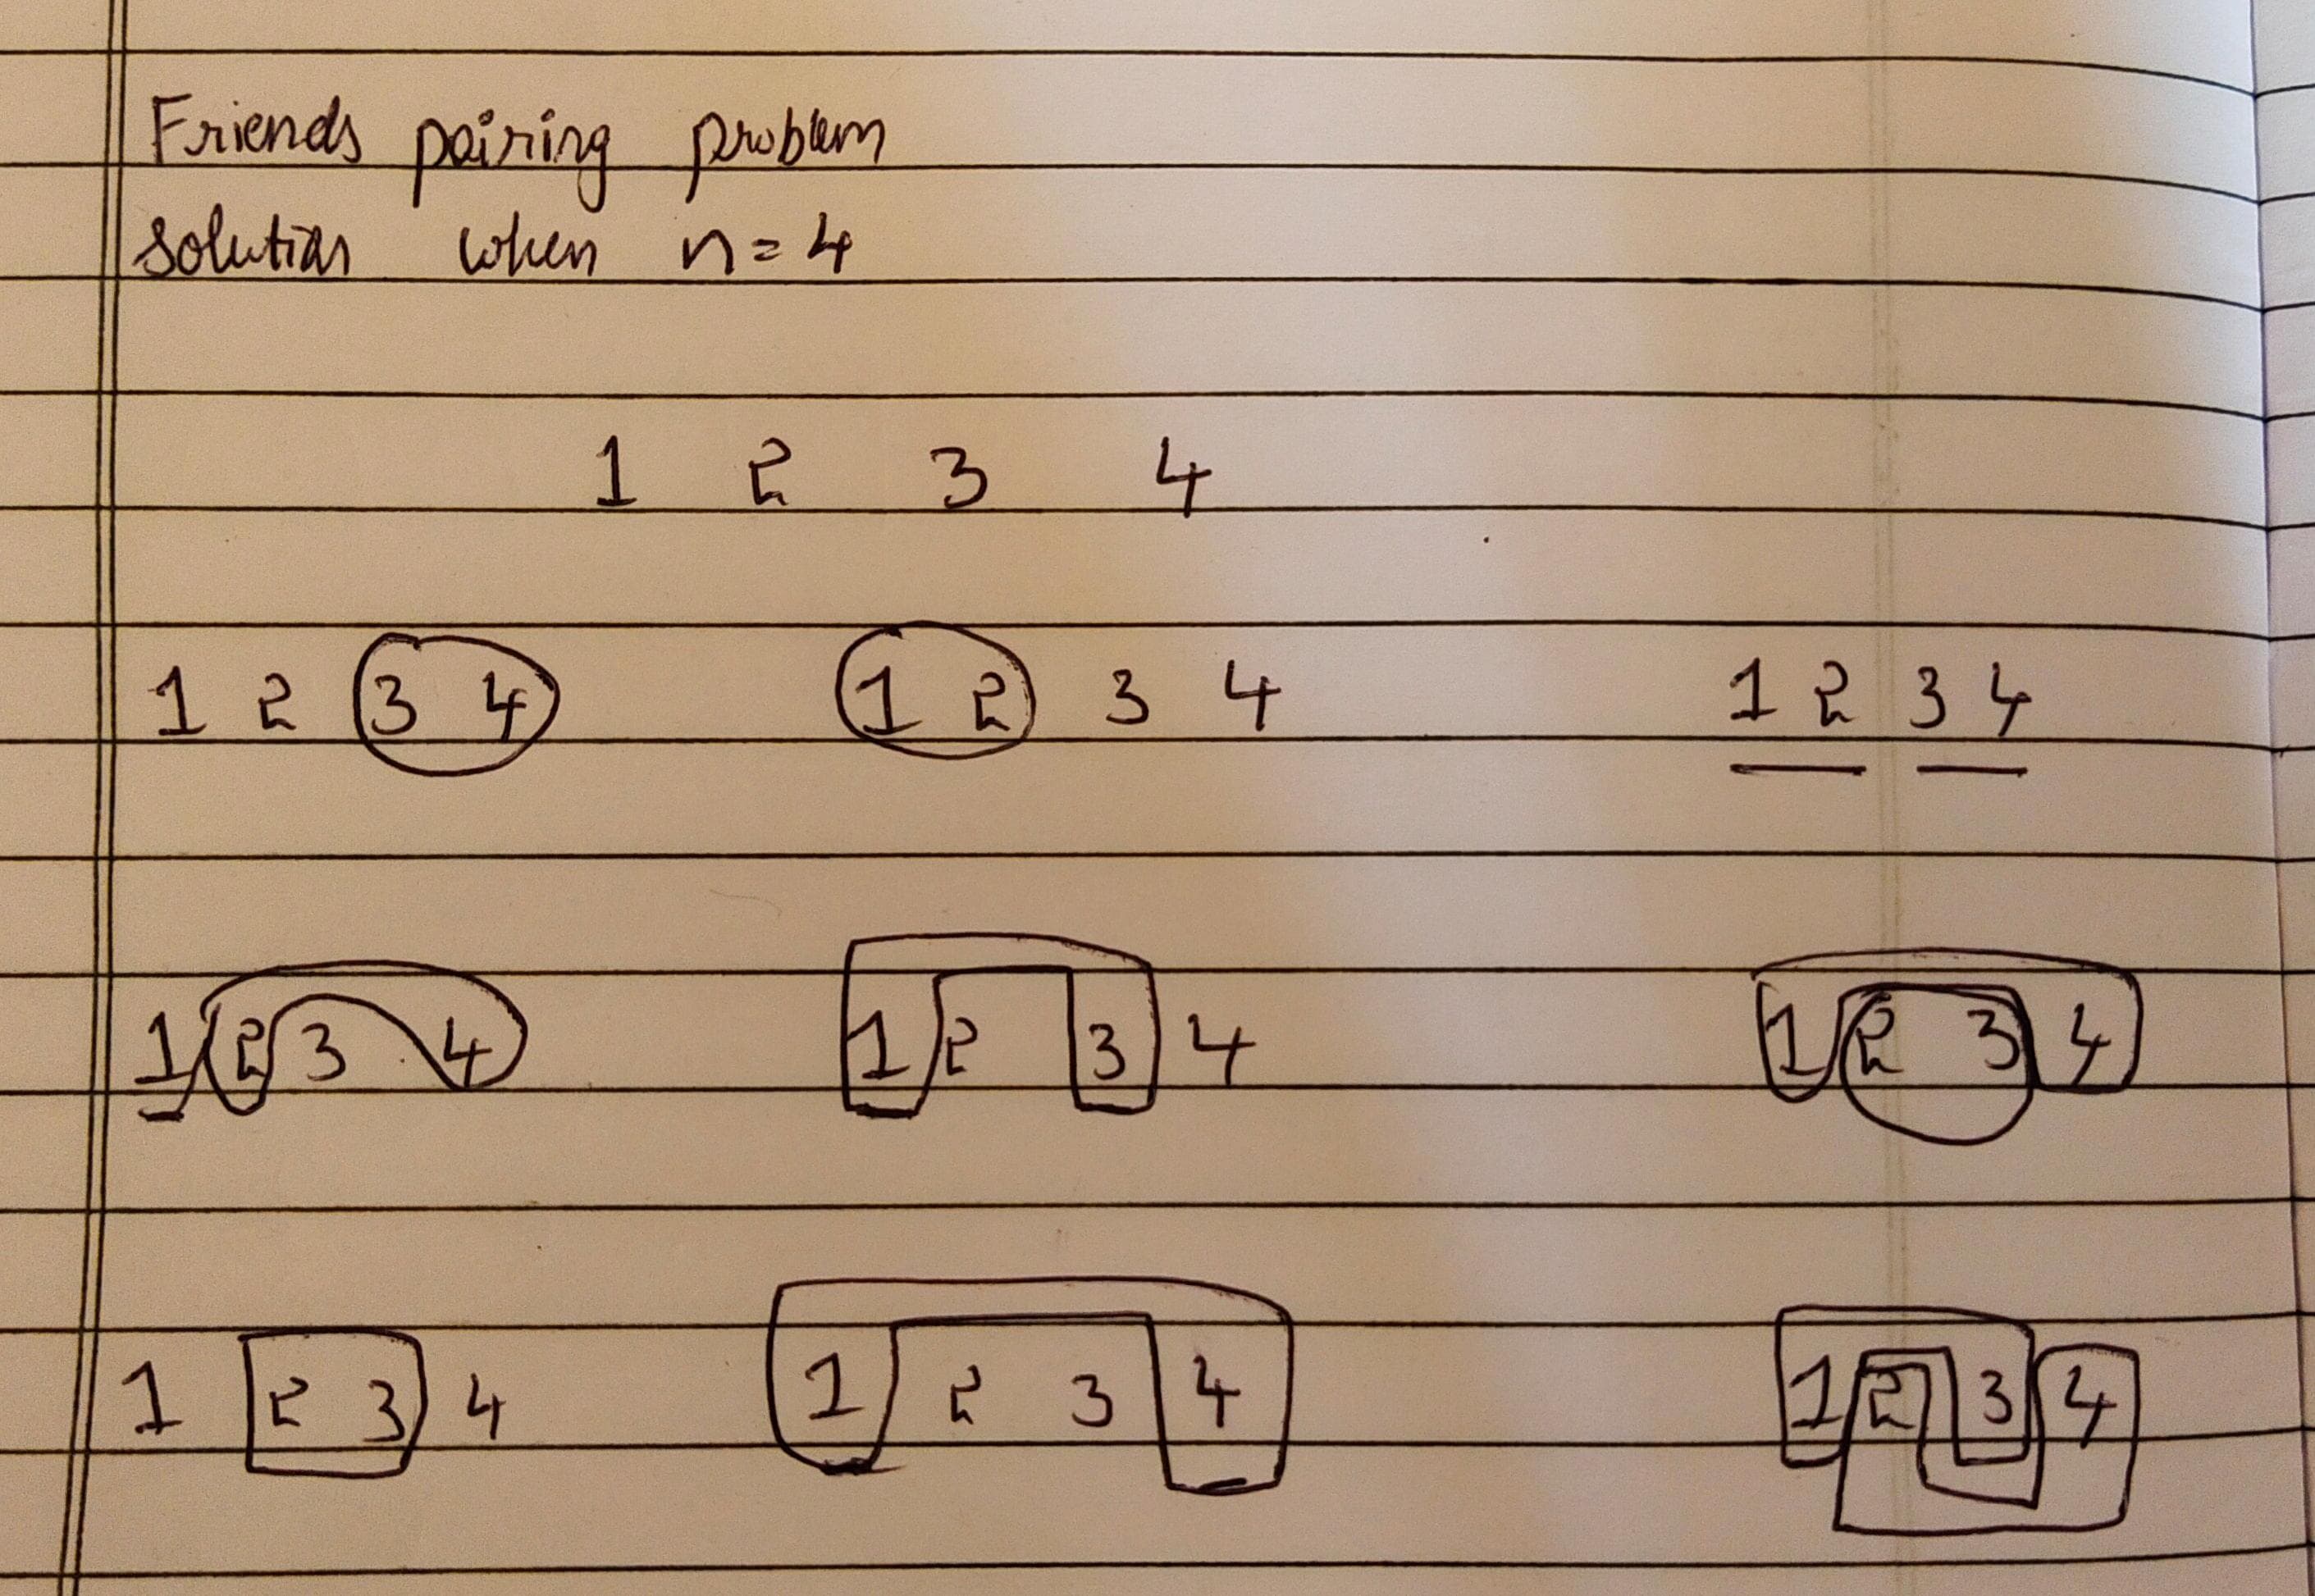 Friends pairing problem
solution when n=4
1 2 3 4
1 2 3 4 1 2 3 4 1 2 3 4
1 2 3 4 1 2 3 4 1 2 3 4
1 2 3 4 1 2 3 4 1 2 3 4